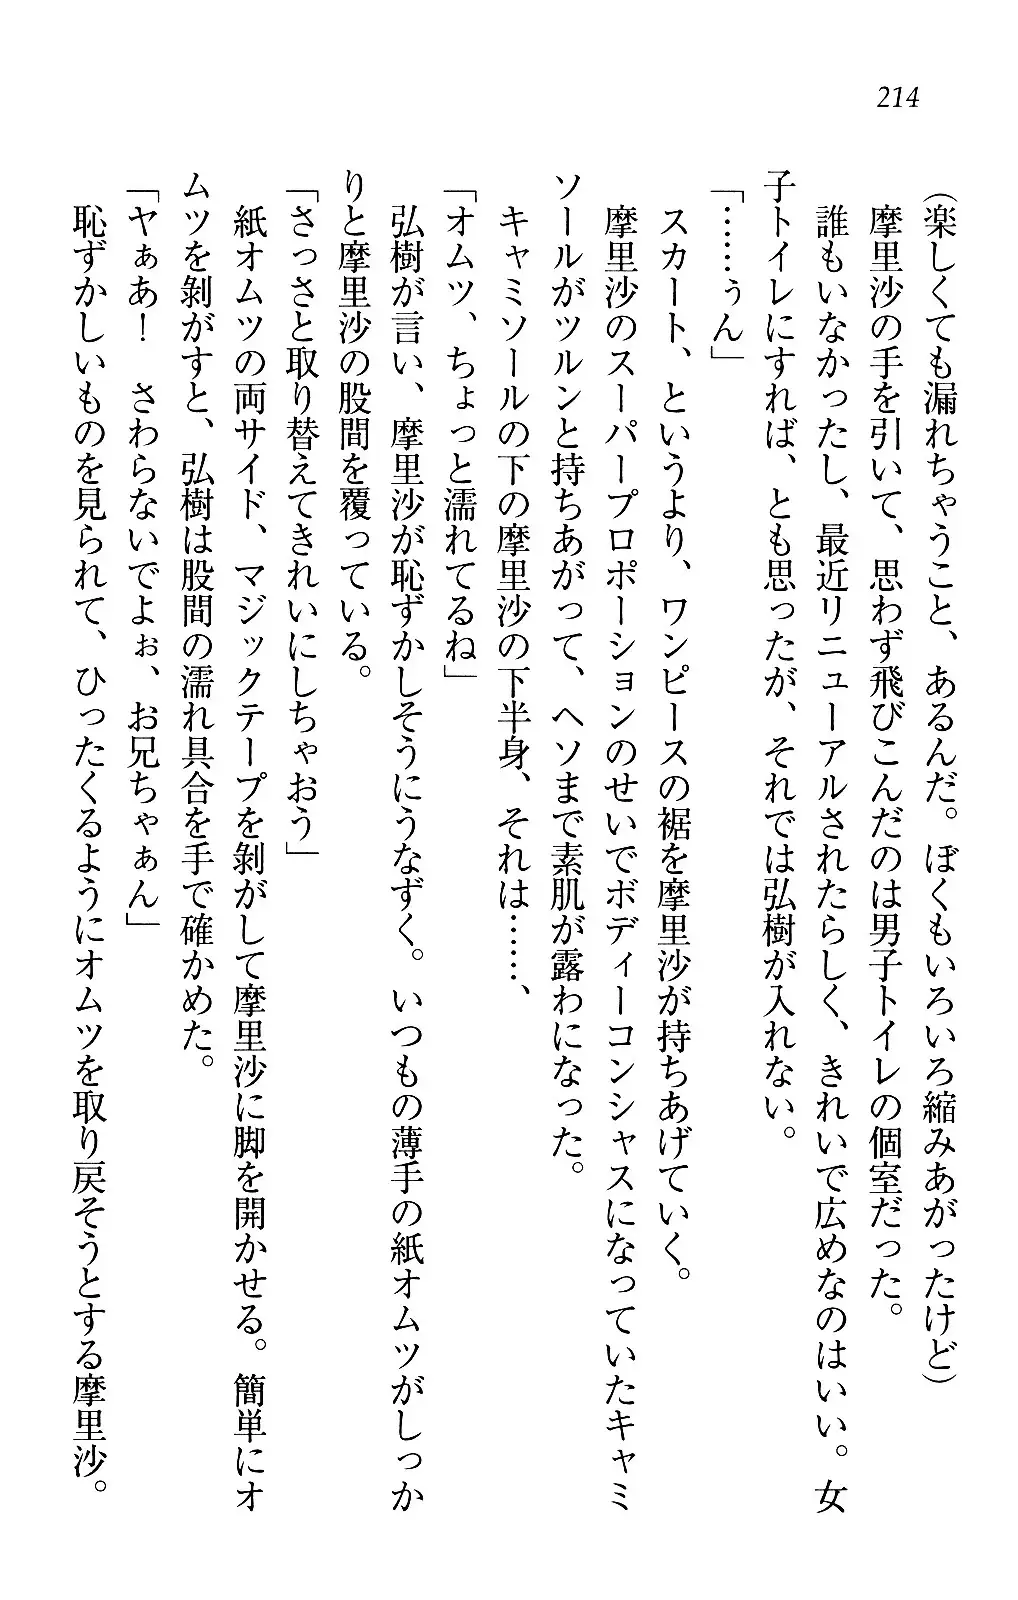 214
（楽しくても漏れちゃうこと、あるんだ。ぼくもいろいろ縮みあがったけど）
摩里沙の手を引いて、思わず飛びこんだのは男子トイレの個室だった。
誰もいなかったし、最近リニューアルされたらしく、きれいで広めなのはいい。女
子トイレにすれば、とも思ったが、それでは弘樹が入れない。
「……ぅん」
スカート、というより、ワンピースの裾を摩里沙が持ちあげていく。
摩里沙のスーパープロポーションのせいでボディーコンシャスになっていたキャミ
ソールがツルンと持ちあがって、ヘソまで素肌が露わになった。
キャミソールの下の摩里沙の下半身、それは……、
「オムツ、ちょっと濡れてるね」
弘樹が言い、摩里沙が恥ずかしそうにうなずく。いつもの薄手の紙オムツがしっか
りと摩里沙の股間を覆っている。
「さっさと取り替えてきれいにしちゃおう」
紙オムツの両サイド、マジックテープを剝がして摩里沙に脚を開かせる。簡単にオ
ムツを剝がすと、弘樹は股間の濡れ具合を手で確かめた。
「ヤぁあ！　さわらないでよぉ、お兄ちゃぁん」
恥ずかしいものを見られて、ひったくるようにオムツを取り戻そうとする摩里沙。